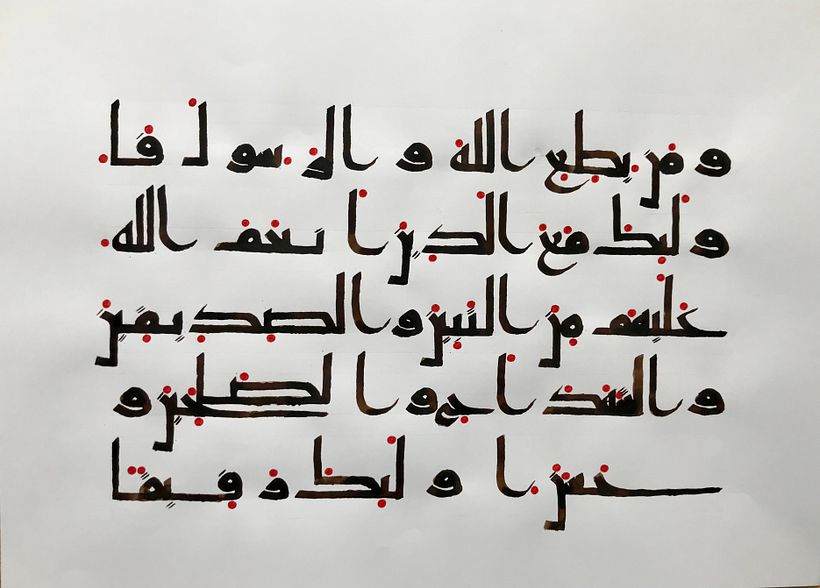 ومن يطع الله والرسول فا
ولئك مع الذين انعم الله
عليهم من النبين والصديقين
والشهدا والصلحين و
حسن اولئك رفيقا